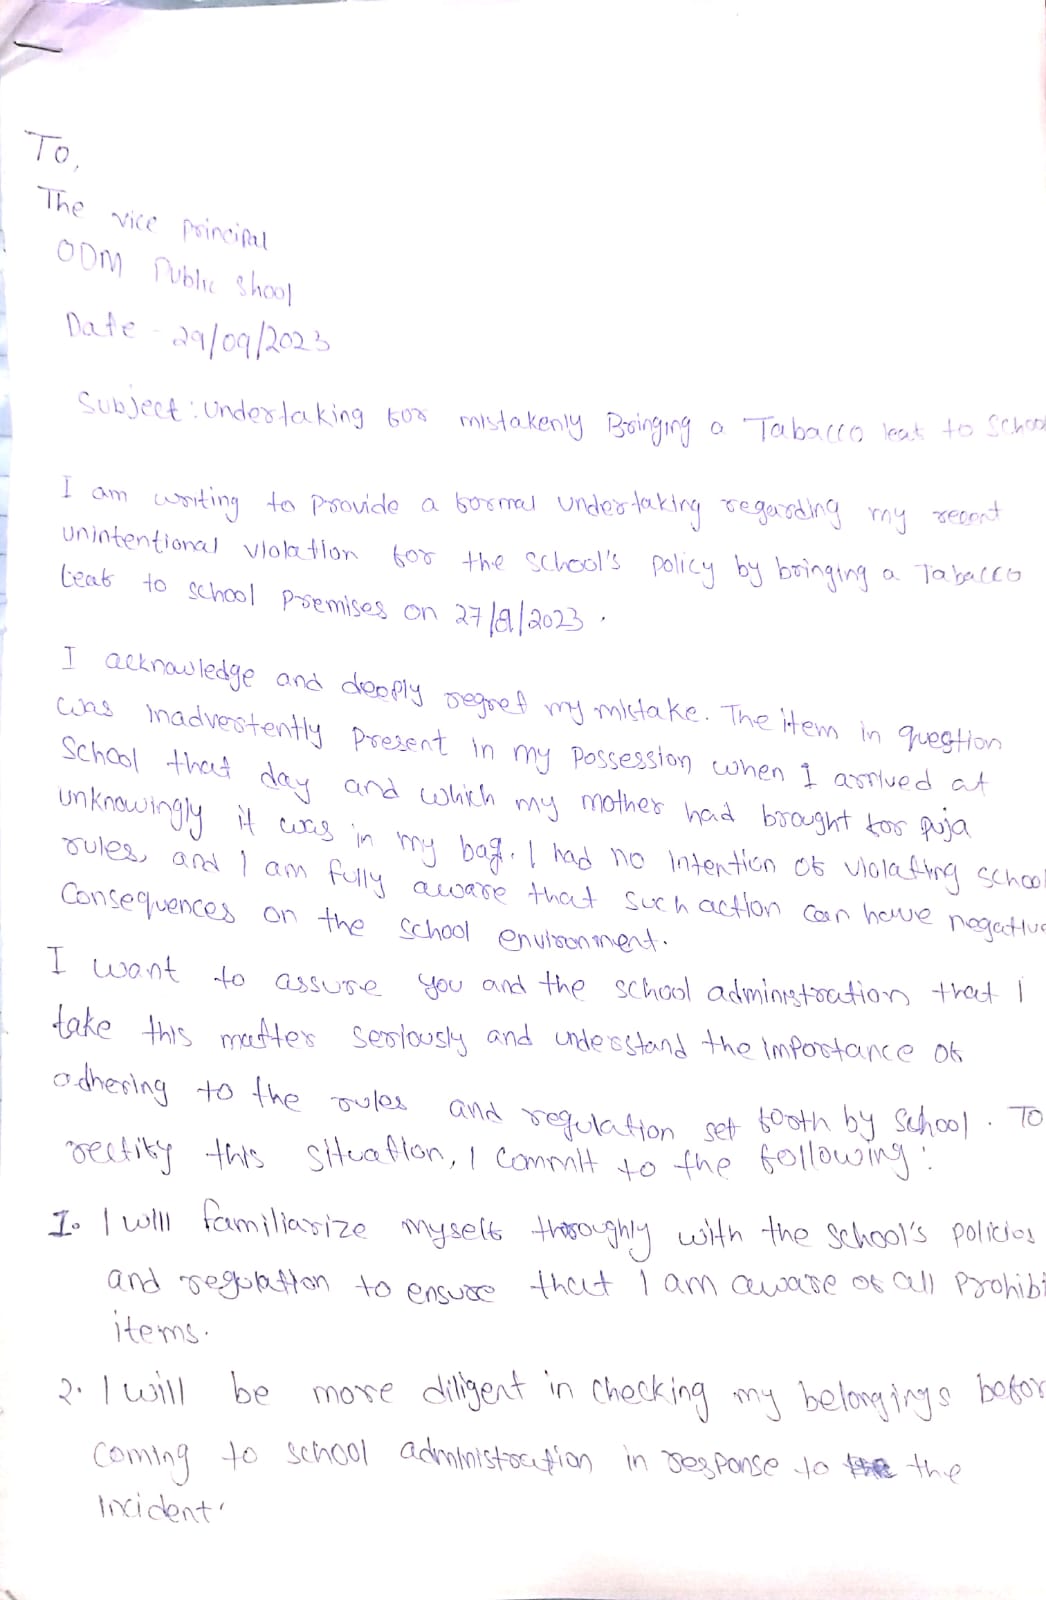 To,
The vice principal
ODM Public Shool
Date - 29/09/2023
Subject : Undertaking for mistakenly Bringing a Tabacco leaf to School
I am writing to provide a formal undertaking regarding my recent
unintentional violation for the school's policy by bringing a Tabacco
leaf to school premises on 27/9/2023 .
I acknowledge and deeply regret my mistake. The item in question
was inadvertently present in my possession when I arrived at
School that day and which my mother had brought for puja
unknowingly it was in my bag. I had no intention of violating school
rules, and I am fully aware that such action can have negative
Consequences on the school environment.
I want to assure you and the school administration that I
take this matter seriously and understand the importance of
adhering to the rules and regulation set forth by School . To
rectify this situation, I commit to the following :
1. I will familiarize myself thoroughly with the school's policies
and regulation to ensure that I am aware of all Prohibi
items.
2. I will be more diligent in checking my belongings befor
coming to school administration in response to the
incident.